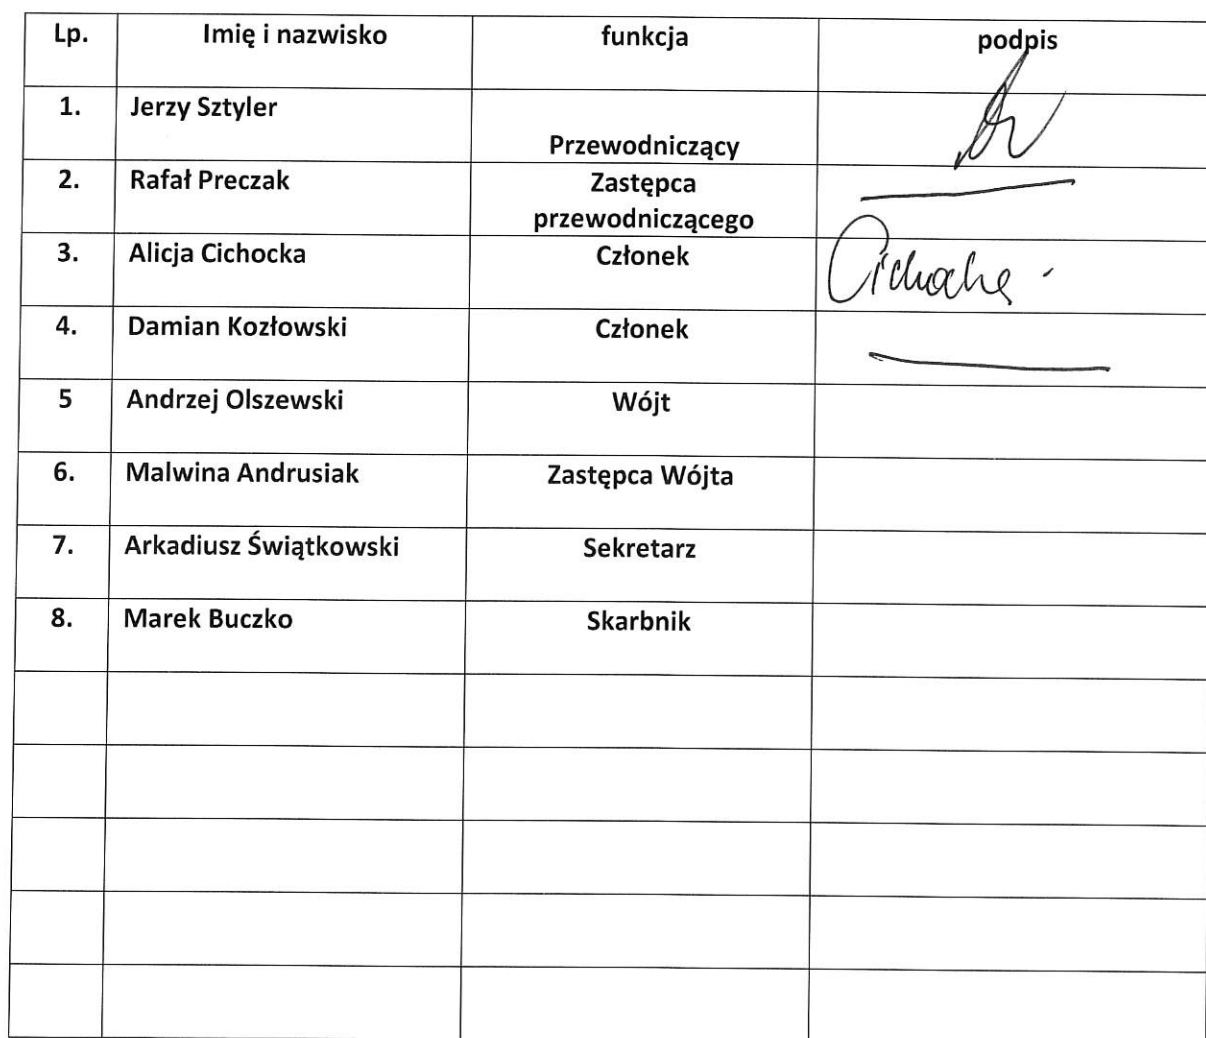 Lp. Imię i nazwisko funkcja podpis
1. Jerzy Sztyler Przewodniczący
2. Rafał Preczak Zastępca
przewodniczącego
3. Alicja Cichocka Członek Cichocka
4. Damian Kozłowski Członek
5 Andrzej Olszewski Wójt
6. Malwina Andrusiak Zastępca Wójta
7. Arkadiusz Świątkowski Sekretarz
8. Marek Buczko Skarbnik